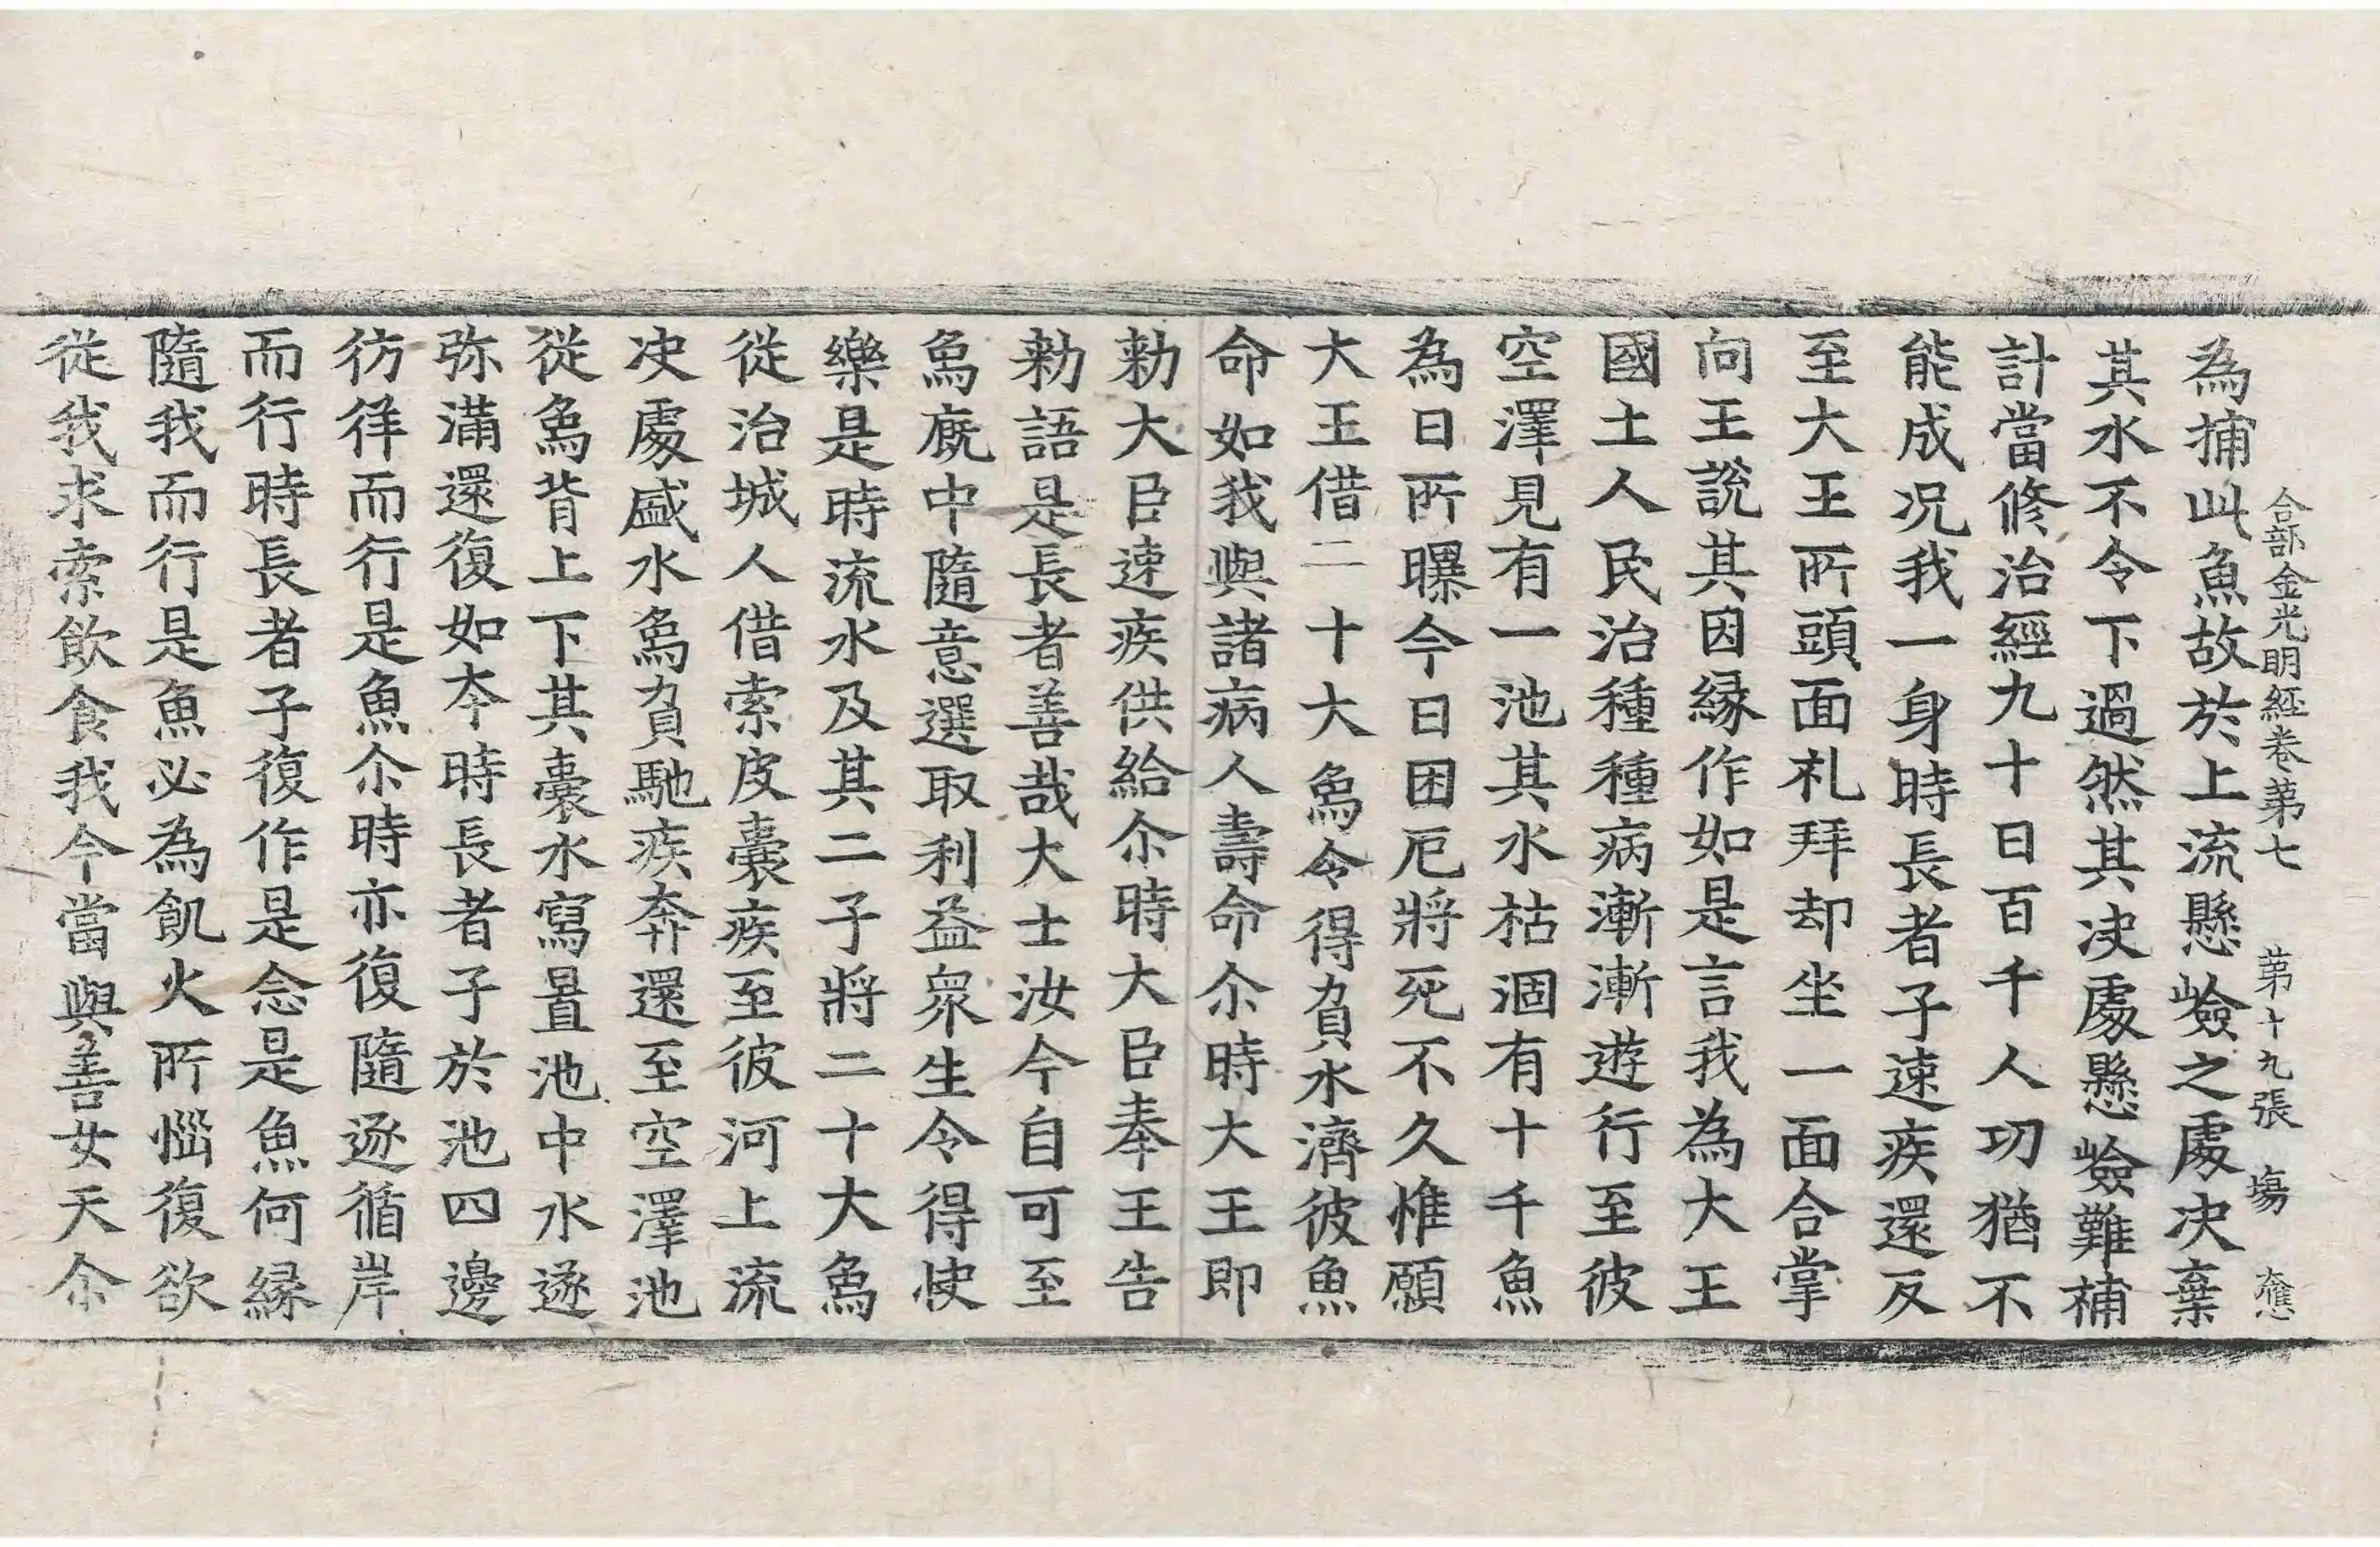 合部金光明経卷第七　第十九張　塲
為捕此魚故於上流懸嶮之處决棄
其水不令下過然其决處懸嶮難補
計當修治經九十日百千人功猶不
能成况我一身時長者子速疾還反
至大王所頭面礼拜却坐一面合掌
向王說其因縁作如是言我為大王
國土人民治種種病漸漸遊行至彼
空澤見有一池其水枯涸有十千魚
為日所曝今日困厄將死不久惟願
大王借二十大象令得負水濟彼魚
命如我與諸病人壽命尒時大王即
勑大臣速疾供給尒時大臣奉王告
勑語是長者善哉大士汝今自可至
象廐中隨意選取利益衆生令得快
樂是時流水及其二子將二十大象
從治城人借索皮囊疾至彼河上流
决處盛水象負馳疾奔還至空澤池
從象背上下其囊水寫置池中水遂
弥滿還復如本時長者子於池四邊
彷徉而行是魚尒時亦復隨逐循岸
而行時長者子復作是念是魚何縁
隨我而行是魚必為飢火所惱復欲
從我求索飲食我今當與善女天尒